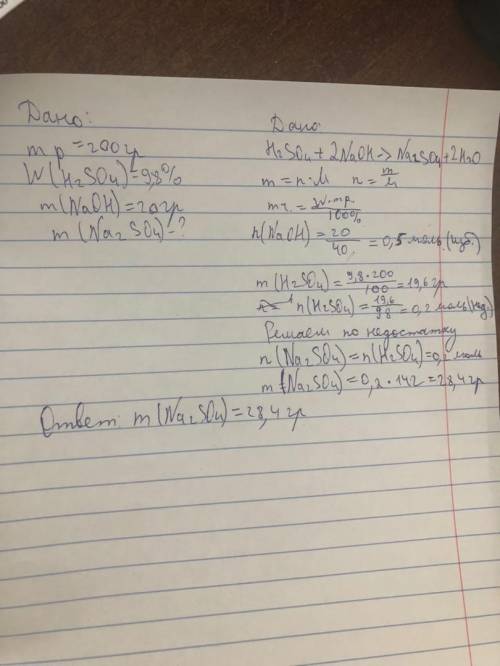 Дано:
m р = 200 гр
W(H₂SO₄) = 9,8%
m(NaOH) = 20 гр
m(Na₂SO₄) - ?
Дано
H₂SO₄ + 2NaOH → Na₂SO₄ + 2H₂O
m = n·M n = m/M
m в. = W·mр./100%
n(NaOH) = 20/40 = 0,5 моль (изб.)
m(H₂SO₄) = 9,8·200/100 = 19,6 гр
n(H₂SO₄) = 19,6/98 = 0,2 моль (нед.)
Решаем по недостатку
n(Na₂SO₄) = n(H₂SO₄) = 0,2 моль
m(Na₂SO₄) = 0,2·142 = 28,4 гр
Ответ: m(Na₂SO₄) = 28,4 гр